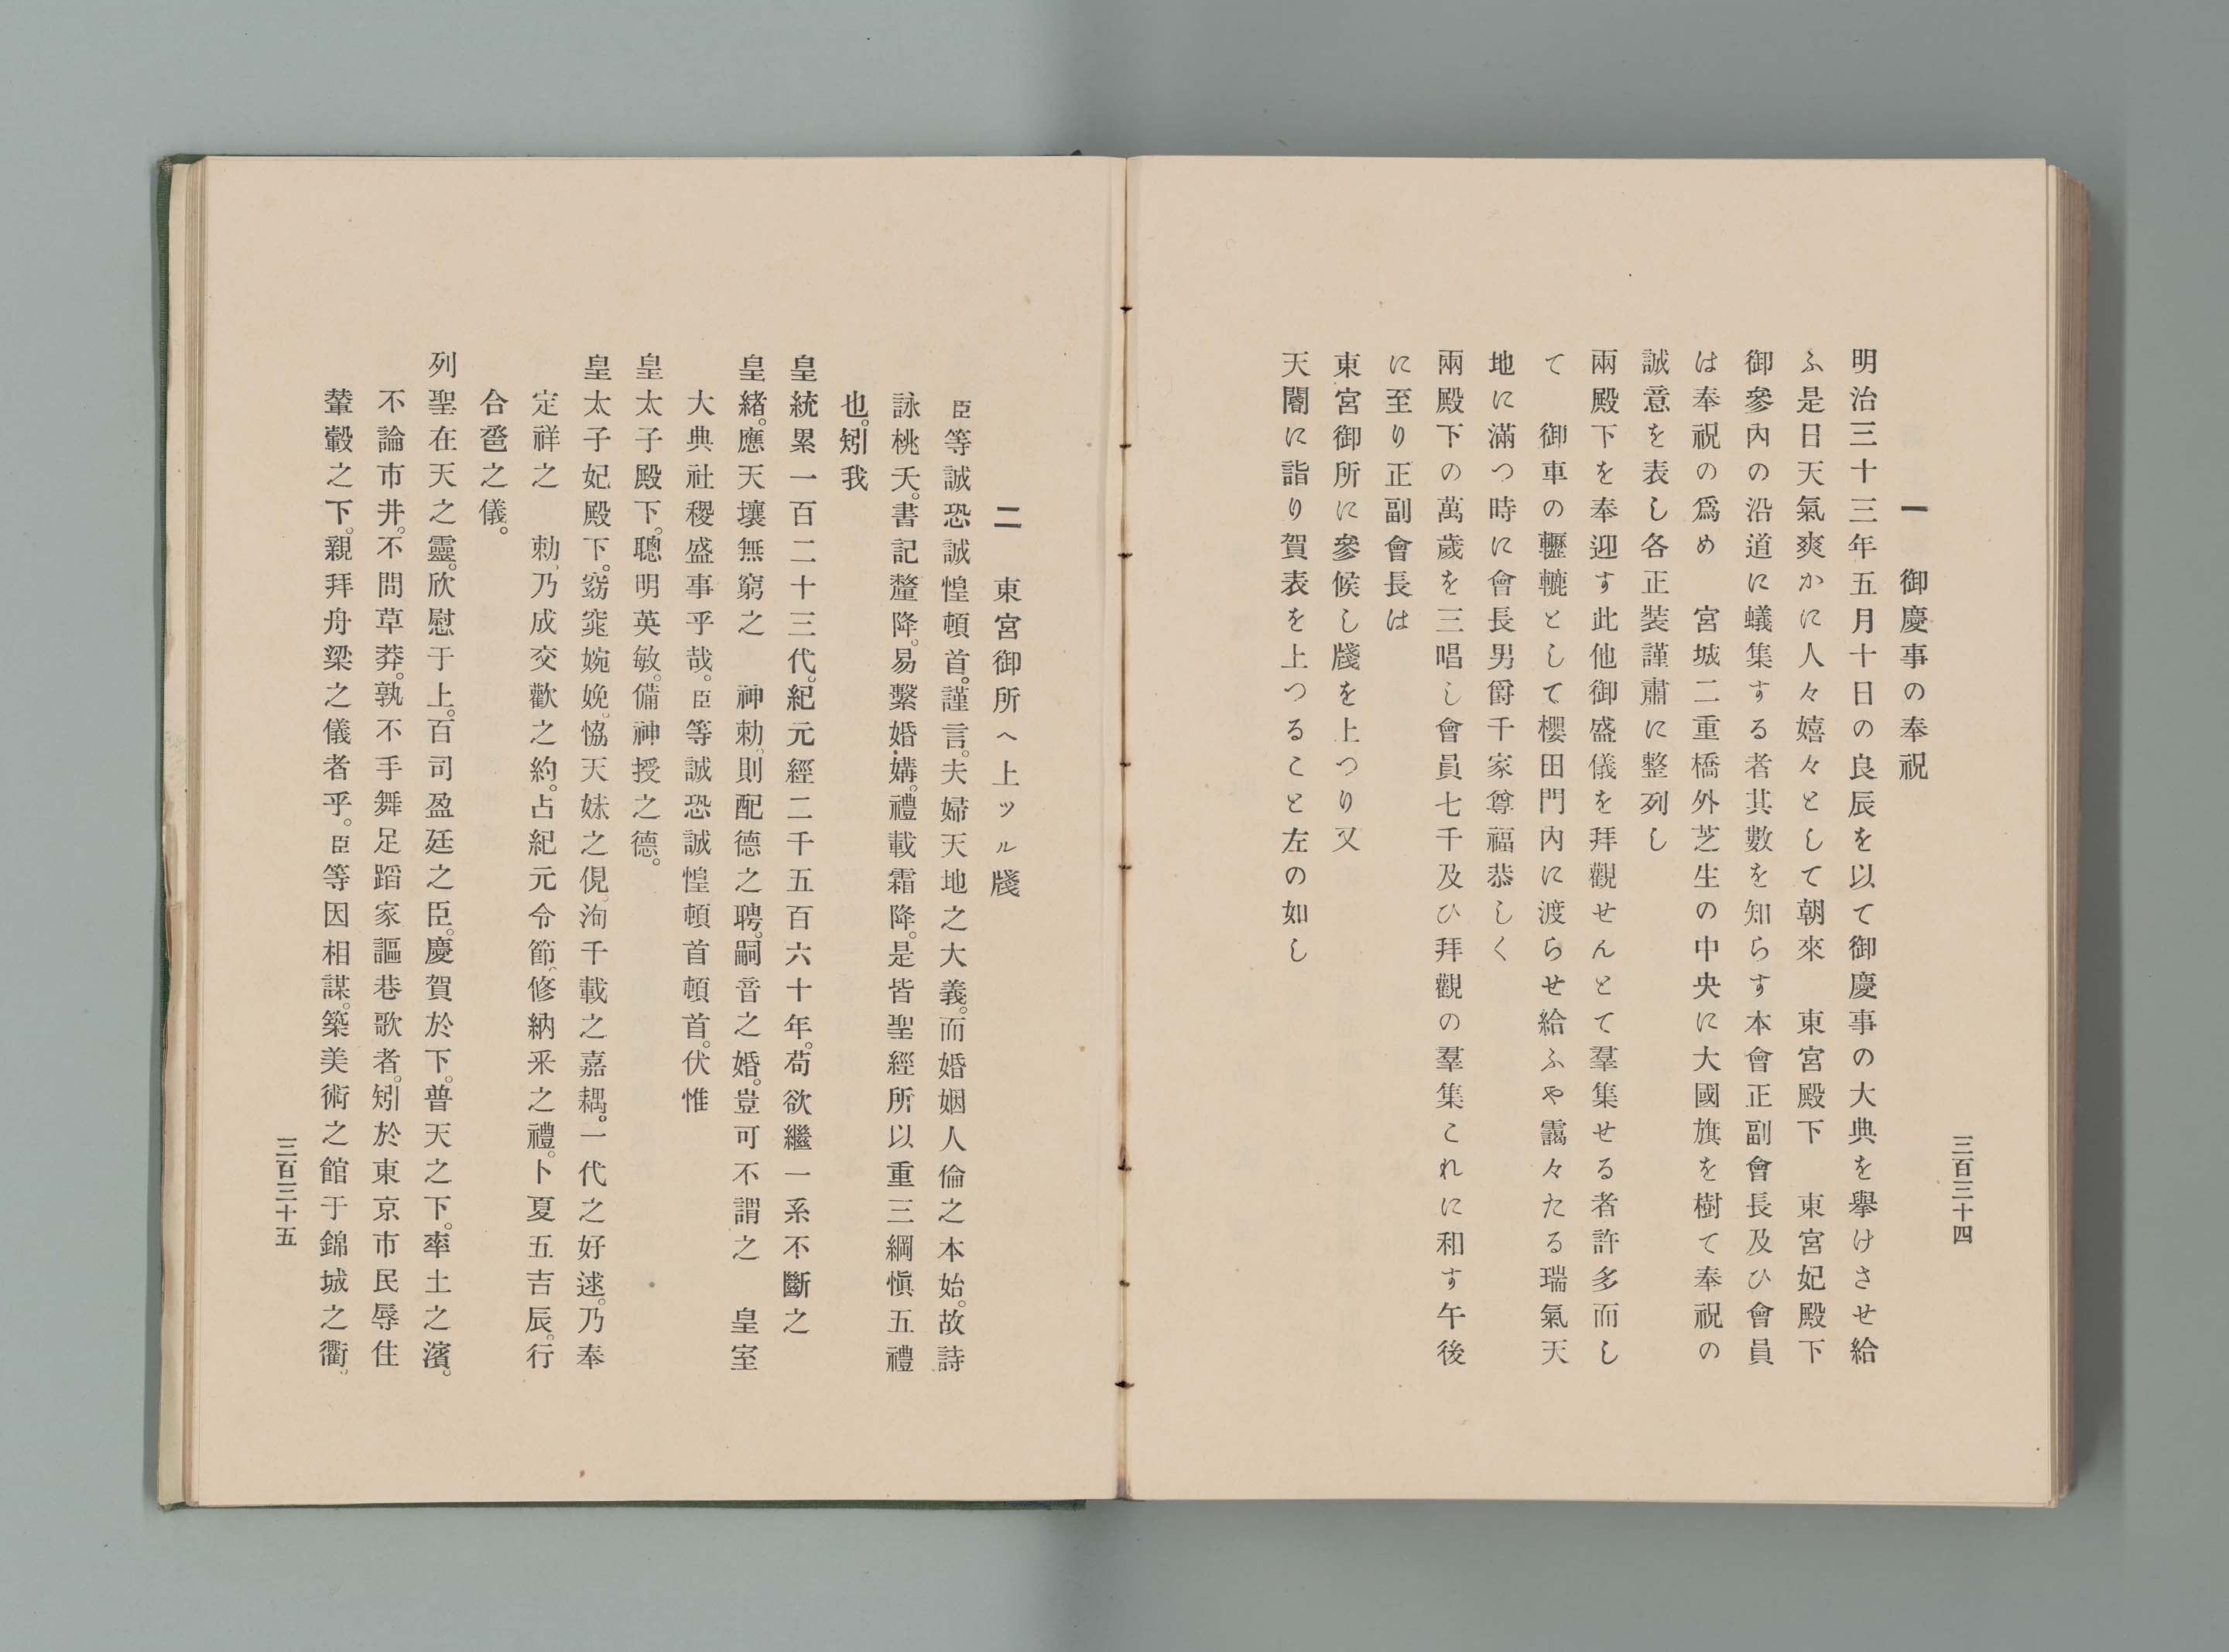 三百三十四
一　御慶事の奉祝
明治三十三年五月十日の良辰を以て御慶事の大典を擧けさせ給
ふ是日天氣爽かに人々嬉々として朝來　東宮殿下　東宮妃殿下
御參內の沿道に蟻集する者其數を知らす本會正副會長及ひ會員
は奉祝の爲め　宮城二重橋外芝生の中央に大國旗を樹て奉祝の
誠意を表し各正裝謹肅に整列し
兩殿下を奉迎す此他御盛儀を拜觀せんとて羣集せる者許多而し
て　御車の轣轆として櫻田門內に渡らせ給ふや靄々たる瑞氣天
地に滿つ時に會長男爵千家尊福恭しく
兩殿下の萬歲を三唱し會員七千及ひ拜觀の羣集これに和す午後
に至り正副會長は
東宮御所に參候し牋を上つり又
天閽に詣り賀表を上つること左の如し
二　東宮御所ヘ上ツル牋
臣等誠恐誠惶頓首。謹言。夫婦天地之大義。而婚姻人倫之本始。故詩
詠桃夭。書記釐降。易繫婚媾。禮載霜降。是皆聖經所以重三綱愼五禮
也。矧我
皇統累一百二十三代。紀元經二千五百六十年。苟欲繼一系不斷之
皇緖。應天壤無窮之　神勅、則配德之聘。嗣音之婚。豈可不謂之　皇室
大典社稷盛事乎哉。臣等誠恐誠惶頓首頓首。伏惟
皇太子殿下。聰明英敏。備神授之德。
皇太子妃殿下。窈窕婉娩。恊天妹之俔。洵千載之嘉耦。一代之好逑。乃奉
定祥之　勅、乃成交歡之約。占紀元令節、修納釆之禮。卜夏五吉辰。行
合卺之儀。
列聖在天之靈。欣慰于上。百司盈廷之臣。慶賀於下。普天之下。率土之濱。
不論市井。不問草莽。孰不手舞足蹈家謳巷歌者。矧於東京市民辱住
輦轂之下。親拜舟梁之儀者乎。臣等因相謀。築美術之館于錦城之衢。
三百三十五